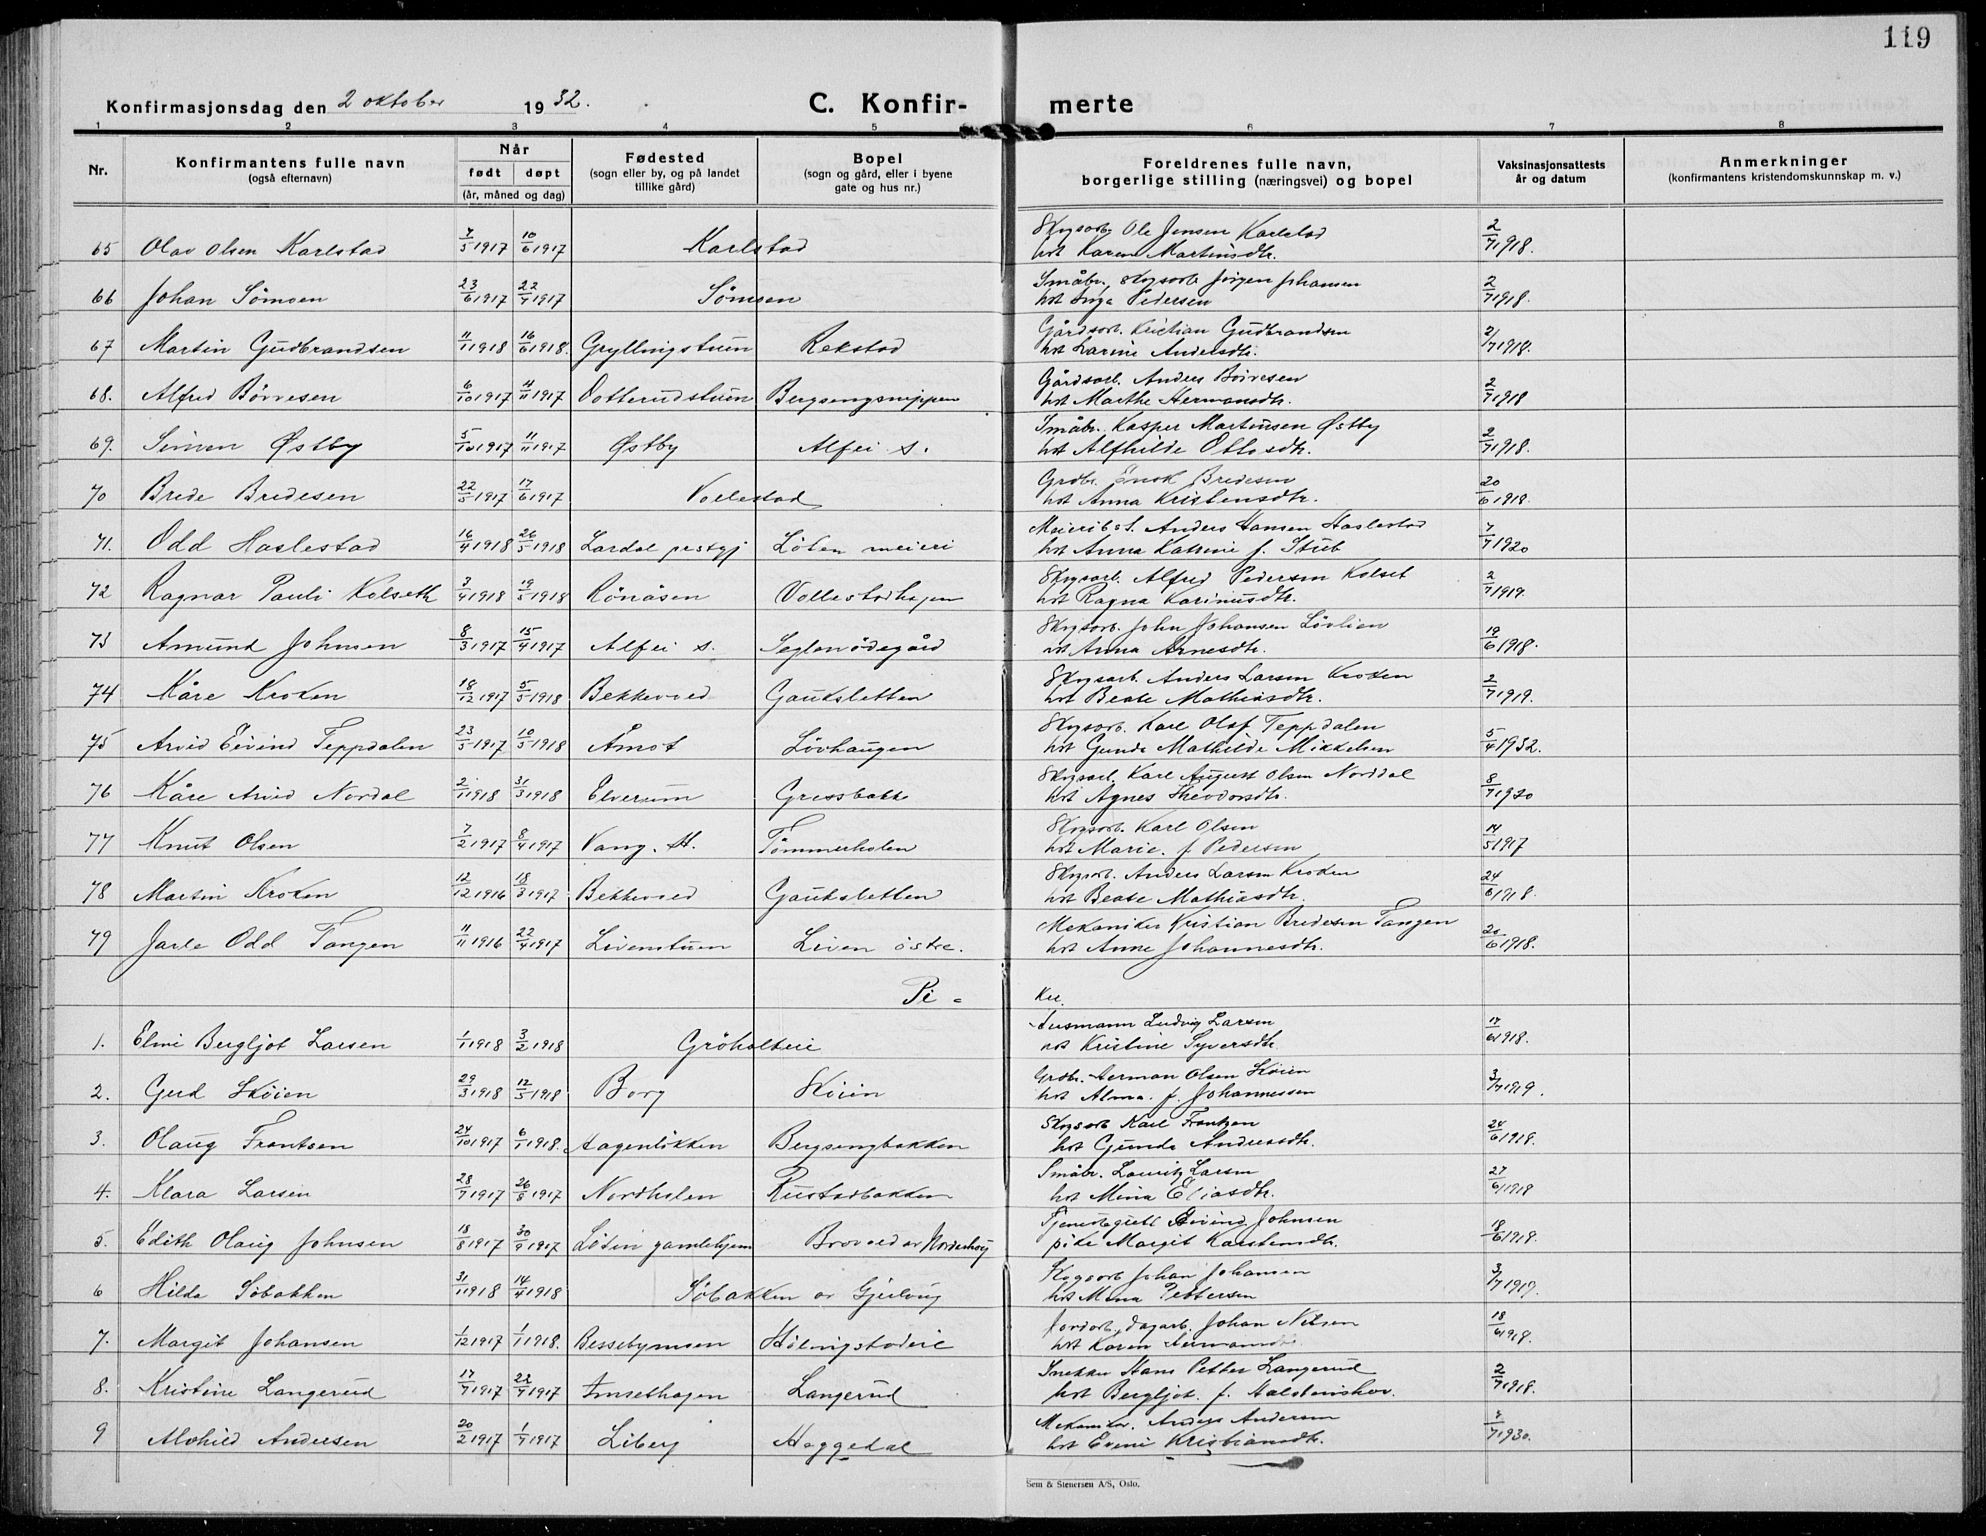 119
Konfirmasjonsdag den 2 oktober 1932.
C. Konfir- merte
1 2 3 4 5 6 7 8
Nr.
Konfirmantens fulle navn
(også efternavn)
Når
født døpt
(år, måned og dag)
Fødested
(sogn eller by, og på landet
tillike gård)
Bopel
(sogn og gård, eller i byene
gate og hus nr.)
Foreldrenes fulle navn,
borgerlige stilling (næringsvei) og bopel
Vaksinasjonsattests
år og datum
Anmerkninger
(konfirmantens kristendomskunnskap m. v.)
65 Olav Olsen Karlstad 7/5 1917 10/6 1917 Karlstad Skogsarb. Ole Jensen Karlstad 2/7 1918.
hst Karen Martinsdtr.
66 Johan Sømoen 23/6 1917 22/7 1917 Sømoen Småbr., skogsarb. Jørgen Johansen 2/7 1918.
hst Inga Pedersen
67 Martin Gudbrandsen 11/1 1918 16/6 1918. Gryllingstuen Rekstad Gårdsarb. Kristian Gudbrandsen 2/7 1918.
hst Larine Andersdtr.
68. Alfred Børresen 6/10 1917 4/11 1917 Ootterudstuen Bergsengsnippen Gårdsarb. Anders Børresen 2/7 1918
hst Marthe Hermansdtr.
69. Simen Østby 5/10 1917 11/11 1917 Østby Alfei s. Småbr. Kasper Martinsen Østby 2/7 1918.
hst Alfhilde Ottosdtr.
70 Brede Bredesen 22/5 1917 17/6 1917 Vollestad Grdbr. Enok Bredesen 20/6 1918.
hst Anna Kristensdtr.
71. Odd Haslestad 16/4 1918 26/5 1918 Lardal prstgj Løten meieri Meieribest. Anders Hansen Haslestad 7/7 1920
hst Anna Katrine f. Stub
72 Ragnar Pauli Kolseth 3/4 1918 19/5 1918 Rønåsen Vollestadhagen Skogsarb. Alfred Pedersen Kolset 2/7 1919.
hst Ragna Karinusdtr.
73 Amund Johnsen 8/3 1917 15/4 1917 Alfei s. Seglonødegård Skogsarb. John Johansen Løvlien 19/6 1918.
hst Anna Arnesdtr.
74 Kåre Kroken 18/12 1917 5/5 1918 Bekkevoed Gaukstetten Skogsarb. Anders Larsen Kroken 2/7 1919.
hst Beate Mathiasdtr.
75 Arvid Eivind Teppdalen 23/5 1917 10/5 1918 Åmot Løvhaugen Skogsarb. Karl Olaf Teppdalen 5/4 1932.
hst Gunda Mathilde Mikkelsen
76 Kåre Arvid Nordal 2/1 1918 31/3 1918 Elverum Gressbakk Skogsarb. Karl August Olsen Norddal 8/7 1920
hst Agnes Theodorsdtr.
77 Knut Olsen 7/2 1917 8/4 1917 Vang. H. Tømmerholen Skogsarb. Karl Olsen 14/5 1917
hst Marie. f Pedersen
78 Martin Kroken 12/12 1916 18/3 1917. Bekkevoed Gaukstetten Skogsarb. Anders Larsen Kroken 24/6 1918.
hst Beate Mathiasdtr.
79 Jarle Odd Tangen 11/11 1916 22/4 1917 Livenstuen Liven østre. Mekaniker Kristian Bredesen Tangen 20/6 1918.
hst Anne Johannesdtr.
Pi- ker.
1. Elni Bergljot Larsen 1/1 1918 3/2 1918 Grøholteie Husmann Ludvig Larsen 17/6 1918.
hst Kristine Syversdtr.
2. Gerd Skøien 29/3 1918 12/5 1918 Borg Skøien Grdbr. Herman Olsen Skøien 3/7 1919.
hst Alma. f. Johannessen
3. Olaug Frantsen 24/10 1917 6/1 1918. Hagenløkken Bergsengbakken Skogsarb Karl Frantzen 24/6 1918.
hst Gunda Andreasdtr.
4. Klara Larsen 28/7 1917 26/8 1917 Nordholen Rustadbakken Småbr. Lauritz Larsen 27/6 1918
hst Mina Eliasdtr.
5. Edith Olaug Johnsen 18/8 1917 30/9 1917 Løten gamlehjem Brovold av Norderhaug Tjenestegutt Eivind Johnsen 18/6 1918.
pike Margit Karstensdtr.
6 Hilda Søbakken 31/1 1918 14/4 1918 Søbakken av Gjelvug Skogsarb Johan Johansen 3/7 1919.
hst Mina Pettersen
7. Margit Johansen 1/12 1917 1/1 1918. Bessebymoen Hølvingstadeie Jordarb., dagarb. Johan Nilsen 18/6 1918.
hst Karen Hermansdtr
8. Kristine Langerud 17/7 1917 22/7 1917 Imsethagen Langerud Snekker Hans Petter Langerud 2/7 1918.
hst Bergljot. f. Halstenshov.
9 Alvhild Andersen 20/2 1917 1/4 1917 Liberg Heggedal Mekaniker. Anders Andersen 7/7 1930.
hst Evine Kristiansdtr.
Sem & Stenersen A/S, Oslo.